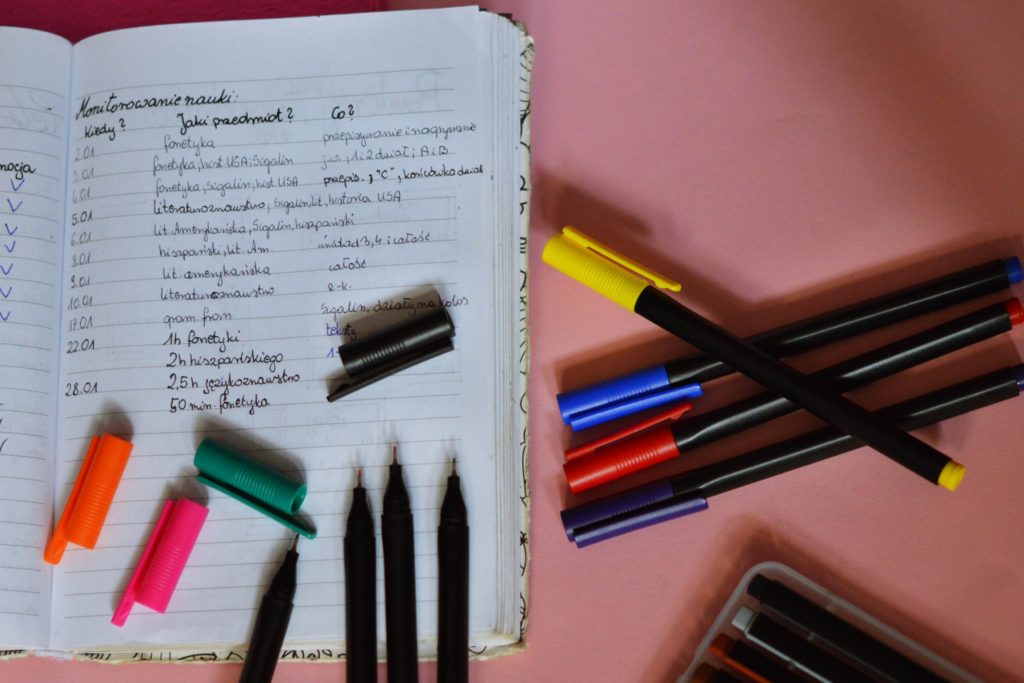 Monitorowanie nauki:
Kiedy? Jaki przedmiot? Co?
2.01 fonetyka przepisywanie i nagrywanie
3.01 fonetyka; hist USA; Sigalin j.w., 1 i 2 dział; A i B
4.01 fonetyka; Sigalin; hist USA przepis., "C", końcówka dział
5.01 literaturoznawstwo, Sigalin, lit, historia USA
6.01 lit. Amerykańska, Sigalin, hiszpański
8.01 hiszpański, lit. Am. 3, 4 i całość
9.01 lit. amerykańska całość
10.01 literaturoznawstwo
17.01 gram. fran Sigalin, działy na kolos
22.01 1h fonetyki teksty
2h hiszpańskiego
28.01 2,5 h językoznawstwo
50 min. fonetyka